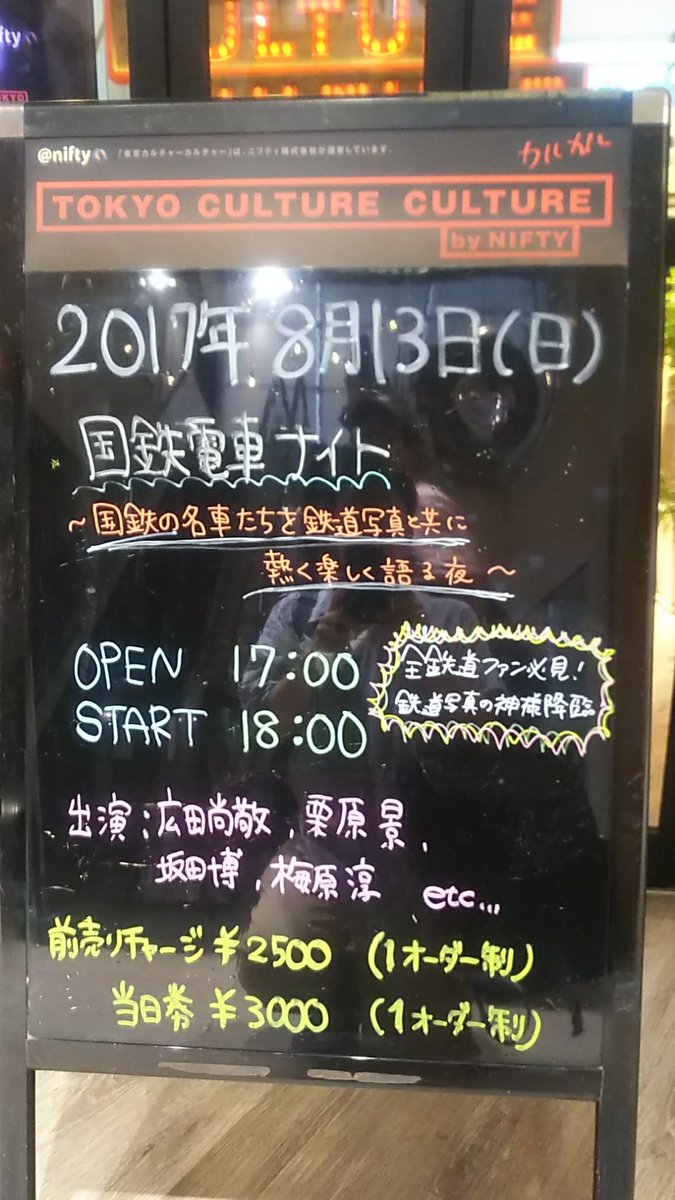 fty
TOKYO
ULTU
@nifty 「東京カルチャーカルチャー」は、ニフティ株式会社が運営しています。
カルカル
TOKYO CULTURE CULTURE
by NIFTY
2017年 8月13日(日)
国鉄電車ナイト
～国鉄の名車たちを鉄道写真と共に
熱く楽しく語る夜～
OPEN 17:00
START 18:00
全鉄道ファン必見!
鉄道写真の神様降臨
出演:広田尚敬,栗原景,
坂田博,梅原淳 etc...
前売りチャージ ¥2500 (1オーダー制)
当日券 ¥3000 (1オーダー制)